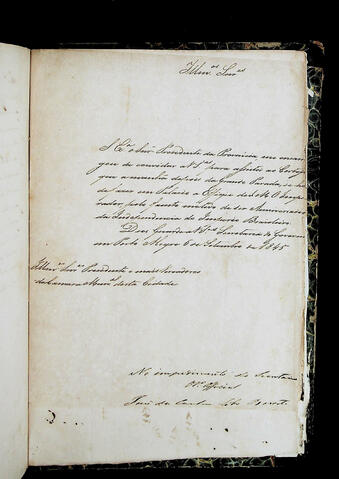 Illm.os Snr.es
S. Ex.a o Snr. Presidente da Provincia me encar
rega de convidar a V. S.as para assistir ao Cortejo
que amanhã depois da Grande Parada, se ha
de fazer em Palacio a Efigie de S. M. O Impe
rador, pelo fausto motivo do Anniversario
da Independencia do Imperio Brasileiro.
Deos Guarde a V. S.as Secretaria do Governo
em Porto Alegre 6 de Setembro de 1845
Illm.os Snr.es Presidente e mais Vereadores
da Camara Mun.al desta Cidade
No impedimento do Secretario
O 1.o Official
José da